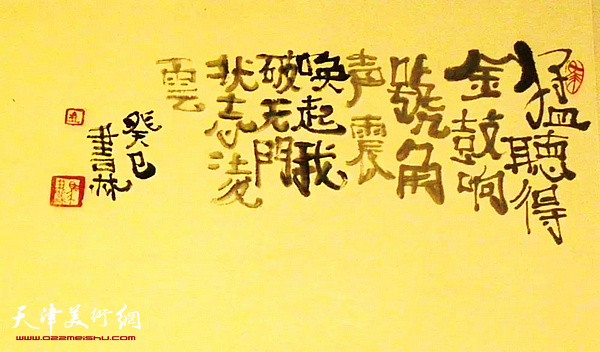 猛聽得
金鼓响
號角
声震
喚起我
破天門
壮志凌
雲
癸巳
書林
天津美術網
www.022meishu.com